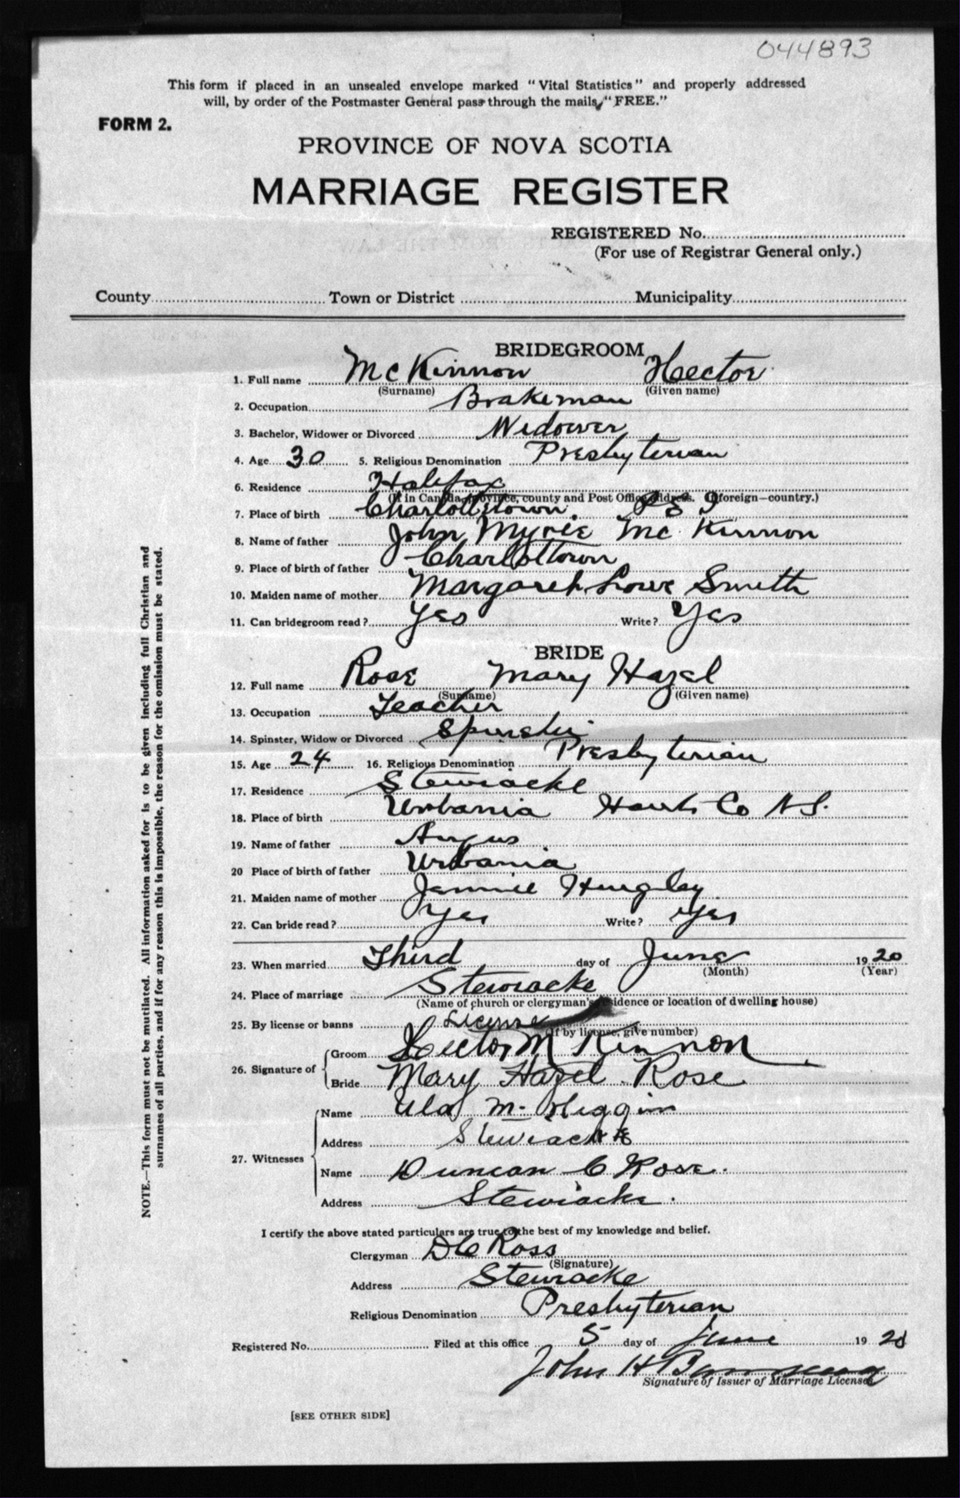 044893
This form if placed in an unsealed envelope marked "Vital Statistics" and properly addressed
will, by order of the Postmaster General pass through the mails, "FREE."
FORM 2.
PROVINCE OF NOVA SCOTIA
MARRIAGE REGISTER
REGISTERED No.
(For use of Registrar General only.)
County Town or District Municipality
BRIDEGROOM
1. Full name McKinnon Hector
(Surname) (Given name)
2. Occupation Brakeman
3. Bachelor, Widower or Divorced Widower
4. Age 30 5. Religious Denomination Presbyterian
6. Residence Halifax
(If in Canada, province, county and Post Office address. If foreign—country.)
7. Place of birth Charlottetown
8. Name of father John Myrie McKinnon
9. Place of birth of father Charlottown
10. Maiden name of mother Margaret Lowe Smith
11. Can bridegroom read? Yes Write? Yes
BRIDE
12. Full name Rose Mary Hazel
(Surname) (Given name)
13. Occupation Teacher
14. Spinster, Widow or Divorced Spinster
15. Age 24 16. Religious Denomination Presbyterian
17. Residence Stewiacke
18. Place of birth Urbania Hants Co N.S.
19. Name of father Angus
20 Place of birth of father Urbania
21. Maiden name of mother Jennie
22. Can bride read? Yes Write? Yes
23. When married Third day of June 1920
(Month) (Year)
24. Place of marriage Stewiacke
(Name of church or clergyman's residence or location of dwelling house)
25. By license or banns License
(If by license, give number)
26. Signature of Groom Hector McKinnon
Bride Mary Hazel Rose
27. Witnesses Name M. Higgin
Address Stewiacke
Name Duncan C Rose.
Address Stewiacke.
I certify the above stated particulars are true to the best of my knowledge and belief.
Clergyman D C Ross
(Signature)
Address Stewiacke
Religious Denomination Presbyterian
Registered No. Filed at this office 5 day of June 1920
John H
Signature of Issuer of Marriage License
[SEE OTHER SIDE]
NOTE.—This form must not be mutilated. All information asked for is to be given including full Christian and
surnames of all parties, and if for any reason this is impossible, the reason for the omission must be stated.